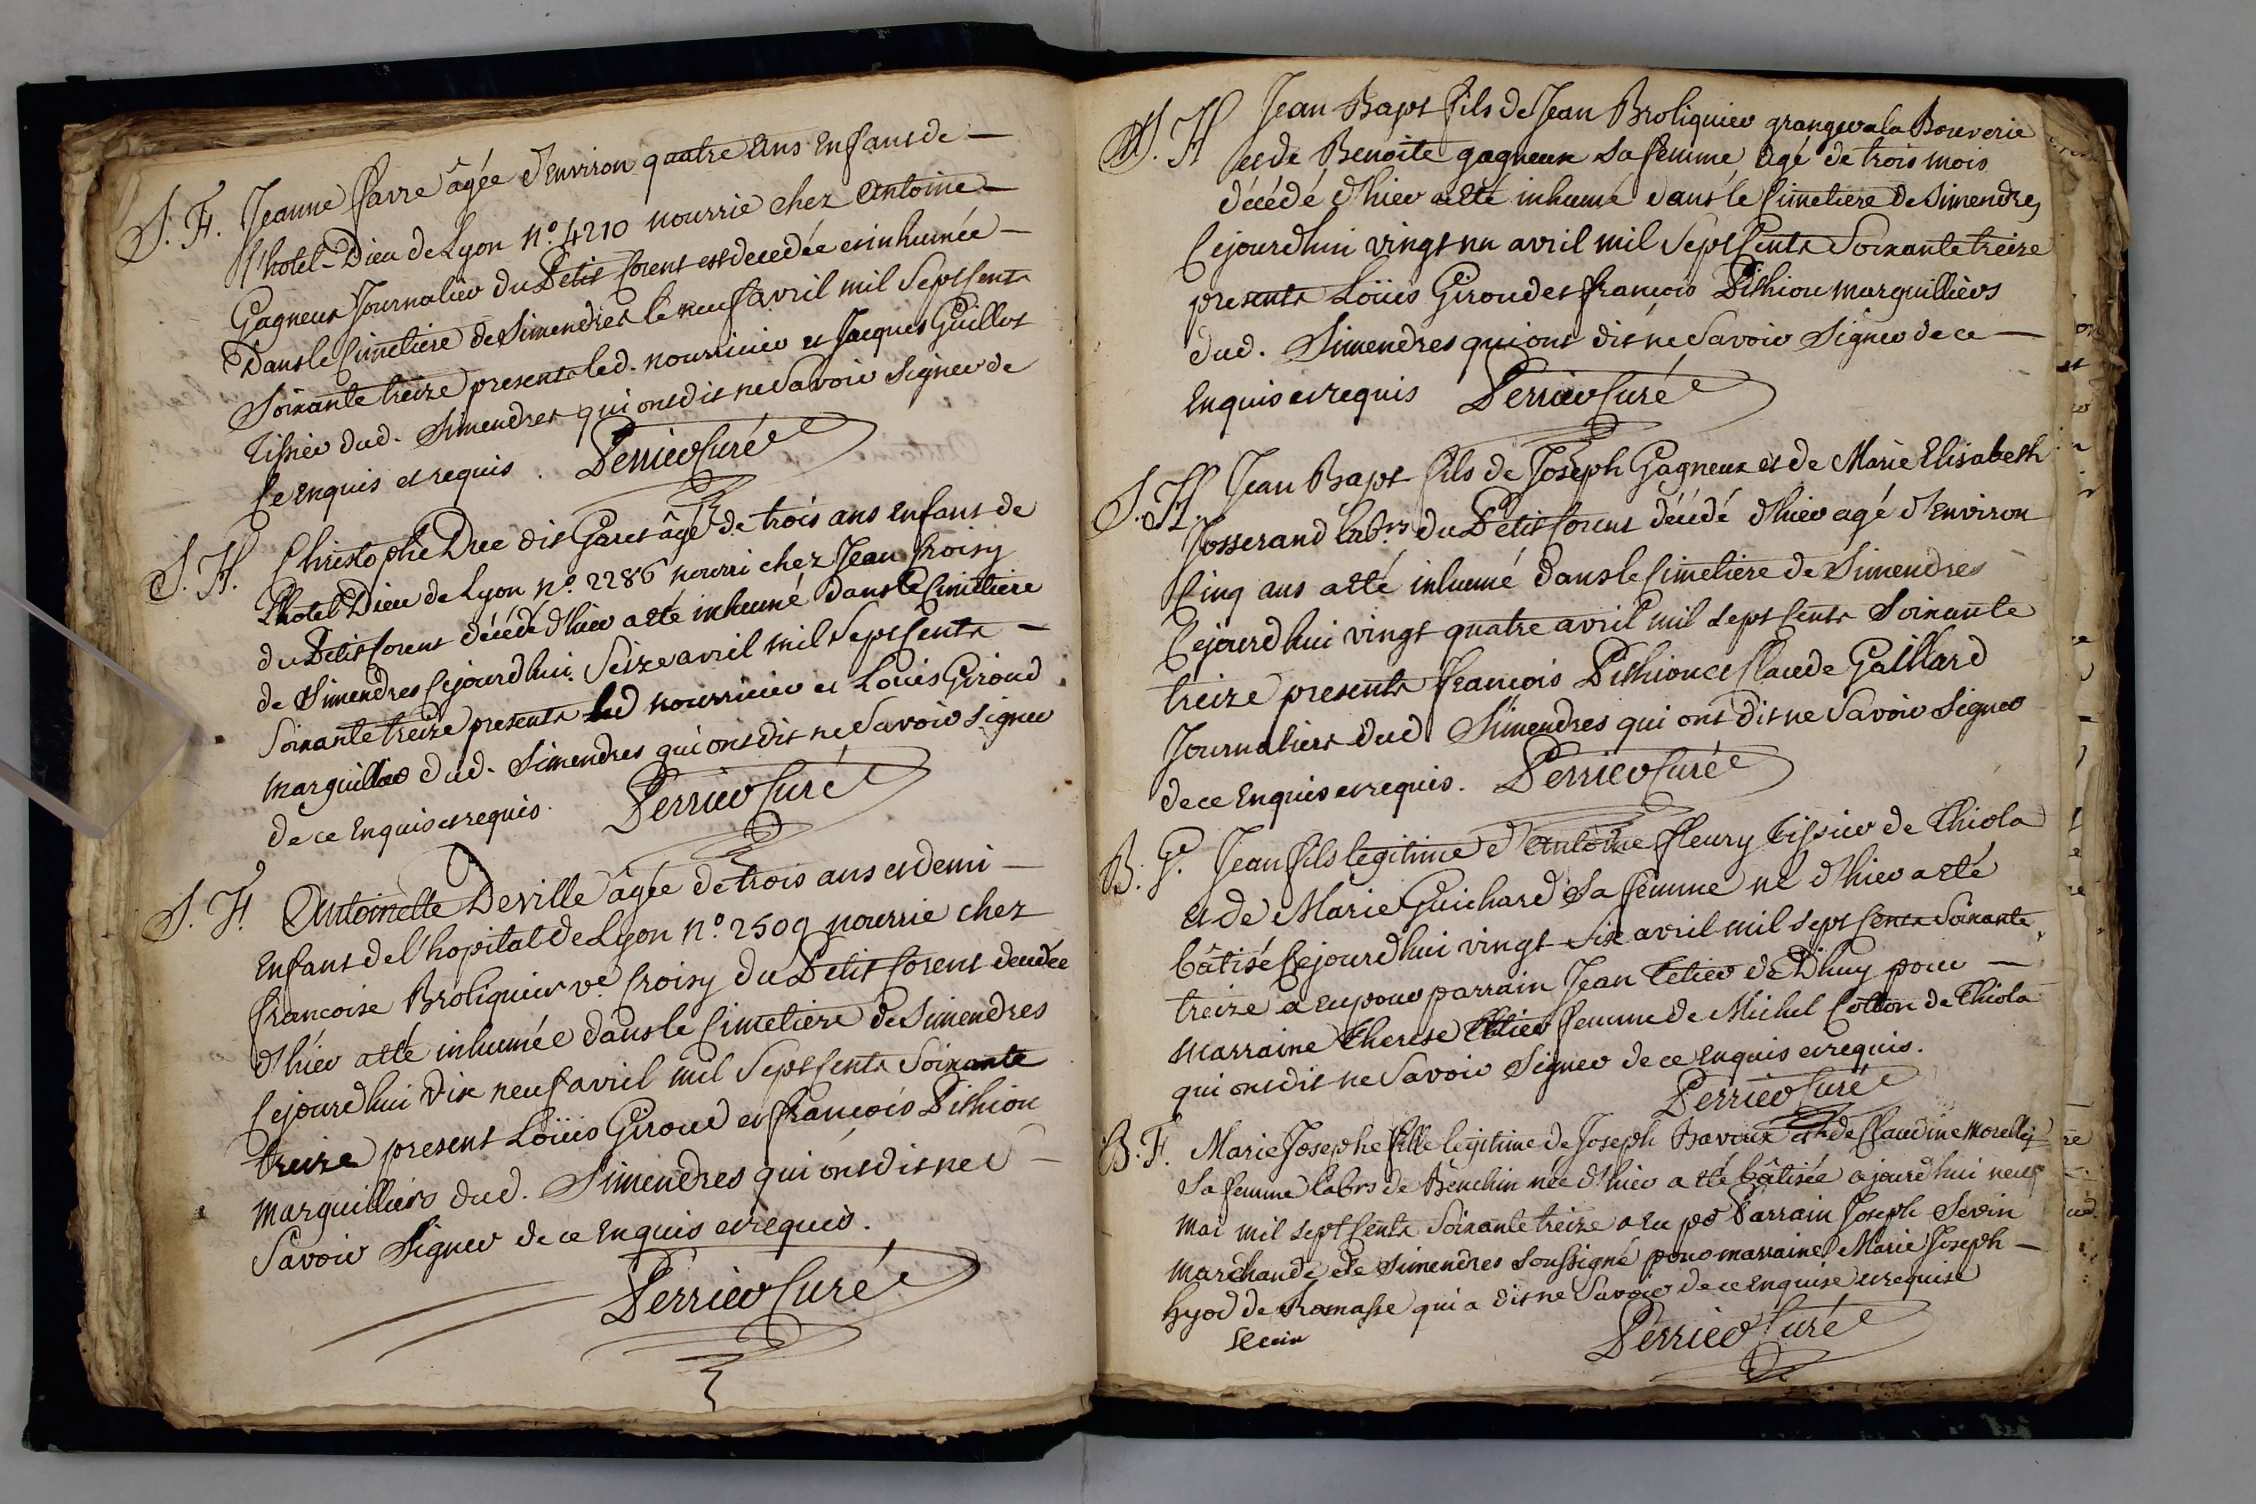 S. F. Jeanne favre âgée d'Environ quatre ans Enfant de —
l'hotel-Dieu de Lyon N.º 4210 nourrie chez antoine —
Gagneux Journalier du Petit Corent est decedée et inhumée —
Dans le Cimetiere de Simendres le neuf avril mil Sept Cents
Soixante treize presents led. nourricier et Jacques Guillot
tissier dud. Simendres qui ont dit ne Savoir Signer de
Ce Enquis et requis. Perrier Curé
S. H. Christophe Duc dit Garet âgé de trois ans Enfant de
l'hotel Dieu de Lyon N.º 2286 nourri chez Jean Croisy
du Petit Corent décédé d'hier a été inhumé Dans le Cimetiere
de Simendres Cejourdhui Seize avril mil Sept Cents —
Soixante treize presents led nourricier et Loüis Giroud
marguillier dud. Simendres qui ont dit ne Savoir signer
de ce Enquis et requis. Perrier Curé
S. F. Antoinette Deville âgée de trois ans et demi —
Enfant de l'hopital de Lyon N.º 2509 nourrie chez
francoise Broliquier ve. Croisy du Petit Corent decedée
d'hier a été inhumée dans le Cimetiere de Simendres
Cejourdhui dix neuf avril mil Sept Cents Soixante
treize present Loüis Giroud et francois Pithiou
marguilliers dud. Simendres qui ont dit ne —
Savoir Signer de ce Enquis et requis.
Perrier Curé
S. H Jean Bapt fils de Jean Broliquier granger a la Bouverie
et de Benoite gagneux Sa femme agé de trois mois
décédé d'hier a été inhumé dans le Cimetiere de Simendres
Cejourdhui vingt un avril mil Sept Cents Soixante treize
presents Loüis Giroud et francois Pithiou marguilliers
dud. Simendres qui ont dit ne Savoir Signer de ce —
Enquis et requis Perrier Curé
S. H. Jean Bapt fils de Joseph Gagneux et de Marie Elisabeth
Josserand labrs du Petit Corent décédé d'hier agé d'Environ
Cinq ans a été inhumé dans le Cimetiere de Simendres
Cejourdhui vingt quatre avril mil sept Cents Soixante
treize presents francois Pithiou et Claude Gaillard
Journaliers dud Simendres qui ont dit ne Savoir Signer
de ce Enquis et requis. Perrier Curé
B. G. Jean fils legitime d'antoine fleury tissier de Chiola
et de Marie Guichard Sa femme né d'hier a été
bâtisé Cejourdhui vingt Six avril mil sept Cents Soixante
treize a eu pour parrain Jean tetier de Dhuy pour —
marraine therese tetier femme de Michel Cotton de Chiola
qui ont dit ne Savoir Signer de ce Enquis et requis.
Perrier Curé
B. F. Marie Josephe fille legitime de Joseph Bavoux et de Claudine Morellet
Sa femme labrs de Benchin née d'hier a été bâtisée ajourdhui neuf
mai mil sept Cents Soixante treize a eu pr Parrain Joseph Sevin
marchand de Simendres Soussigné pour marraine Marie Joseph —
hyod de Romasse qui a dit ne Savoir de ce Enquise et requise
Sevin
Perrier Curé